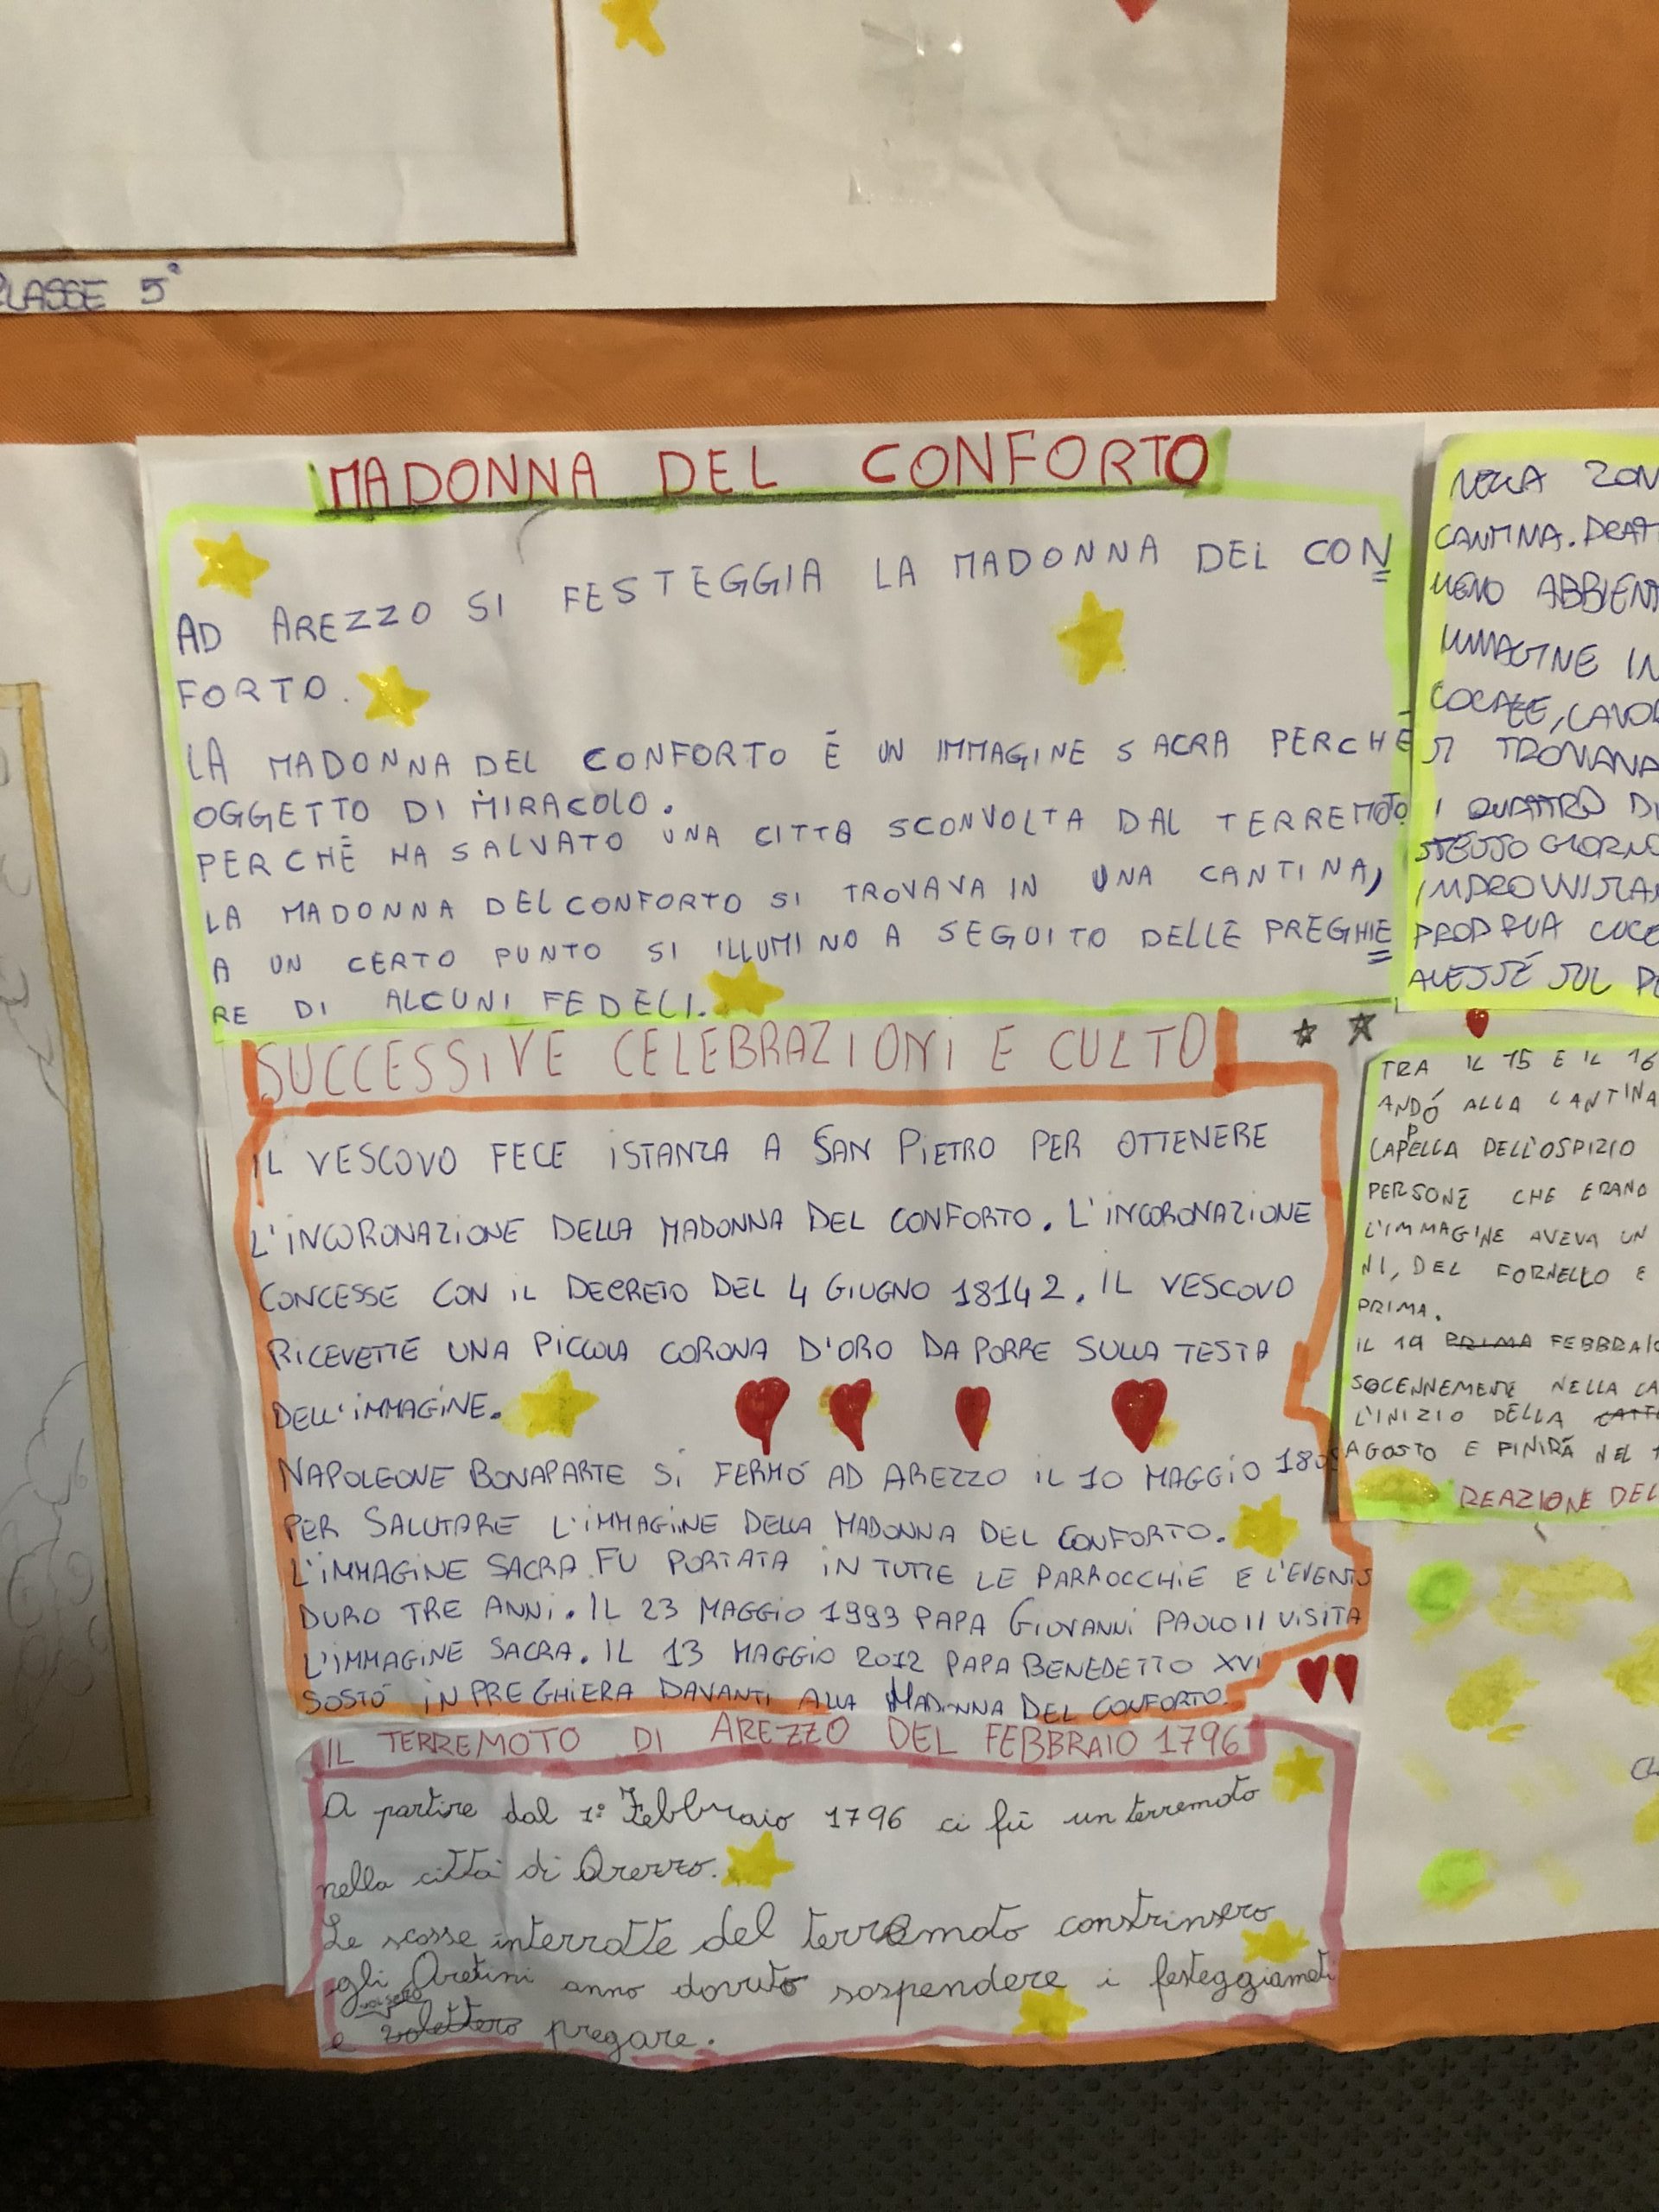 CLASSE 5°
MADONNA DEL CONFORTO
AD AREZZO SI FESTEGGIA LA MADONNA DEL CON
FORTO.
LA MADONNA DEL CONFORTO È UN IMMAGINE SACRA PERCHÉ
OGGETTO DI MIRACOLO.
PERCHÉ HA SALVATO UNA CITTÀ SCONVOLTA DAL TERREMOTO
LA MADONNA DEL CONFORTO SI TROVAVA IN UNA CANTINA,
A UN CERTO PUNTO SI ILLUMINO A SEGUITO DELLE PREGHIE
RE DI ALCUNI FEDELI.
SUCCESSIVE CELEBRAZIONI E CULTO
IL VESCOVO FECE ISTANZA A SAN PIETRO PER OTTENERE
L'INCORONAZIONE DELLA MADONNA DEL CONFORTO. L'INCORONAZIONE
CONCESSE CON IL DECRETO DEL 4 GIUGNO 18142. IL VESCOVO
RICEVETTE UNA PICCOLA CORONA D'ORO DA PORRE SULLA TESTA
DELL'IMMAGINE.
NAPOLEONE BONAPARTE SI FERMÓ AD AREZZO IL 10 MAGGIO
PER SALUTARE L'IMMAGINE DELLA MADONNA DEL CONFORTO.
L'IMMAGINE SACRA FU PORTATA IN TUTTE LE PARROCCHIE E L'EVENTO
DURO TRE ANNI. IL 23 MAGGIO 1993 PAPA GIOVANNI PAOLO II VISITA
L'IMMAGINE SACRA. IL 13 MAGGIO 2012 PAPA BENEDETTO XVI
SOSTÓ IN PREGHIERA DAVANTI ALLA MADONNA DEL CONFORTO.
IL TERREMOTO DI AREZZO DEL FEBBRAIO 1796
A partire dal 1° Febbraio 1796 ci fù un terremoto
nella città di Arezzo.
Le scosse interrotte del terremoto constrinsero
gli Aretini anno dovuto sospendere i festeggiameti
e pregare.
NELLA
CANTINA.
MENO
IMMAGINE IN
LOCALE,
SI
I QUATTRO
STESSO GIORNO
PROPRIA
AVESSÉ SUL
TRA IL 15 E IL 16
ANDÓ ALLA CANTINA
CAPELLA DELL'OSPIZIO
PERSONE CHE ERANO
L'IMMAGINE AVEVA UN
NI, DEL FORNELLO E
PRIMA.
IL 19 PRIMA FEBBRAIO
SOCENNEMENTE NELLA
L'INIZIO DELLA
AGOSTO E FINIRÀ NEL
REAZIONE DEL